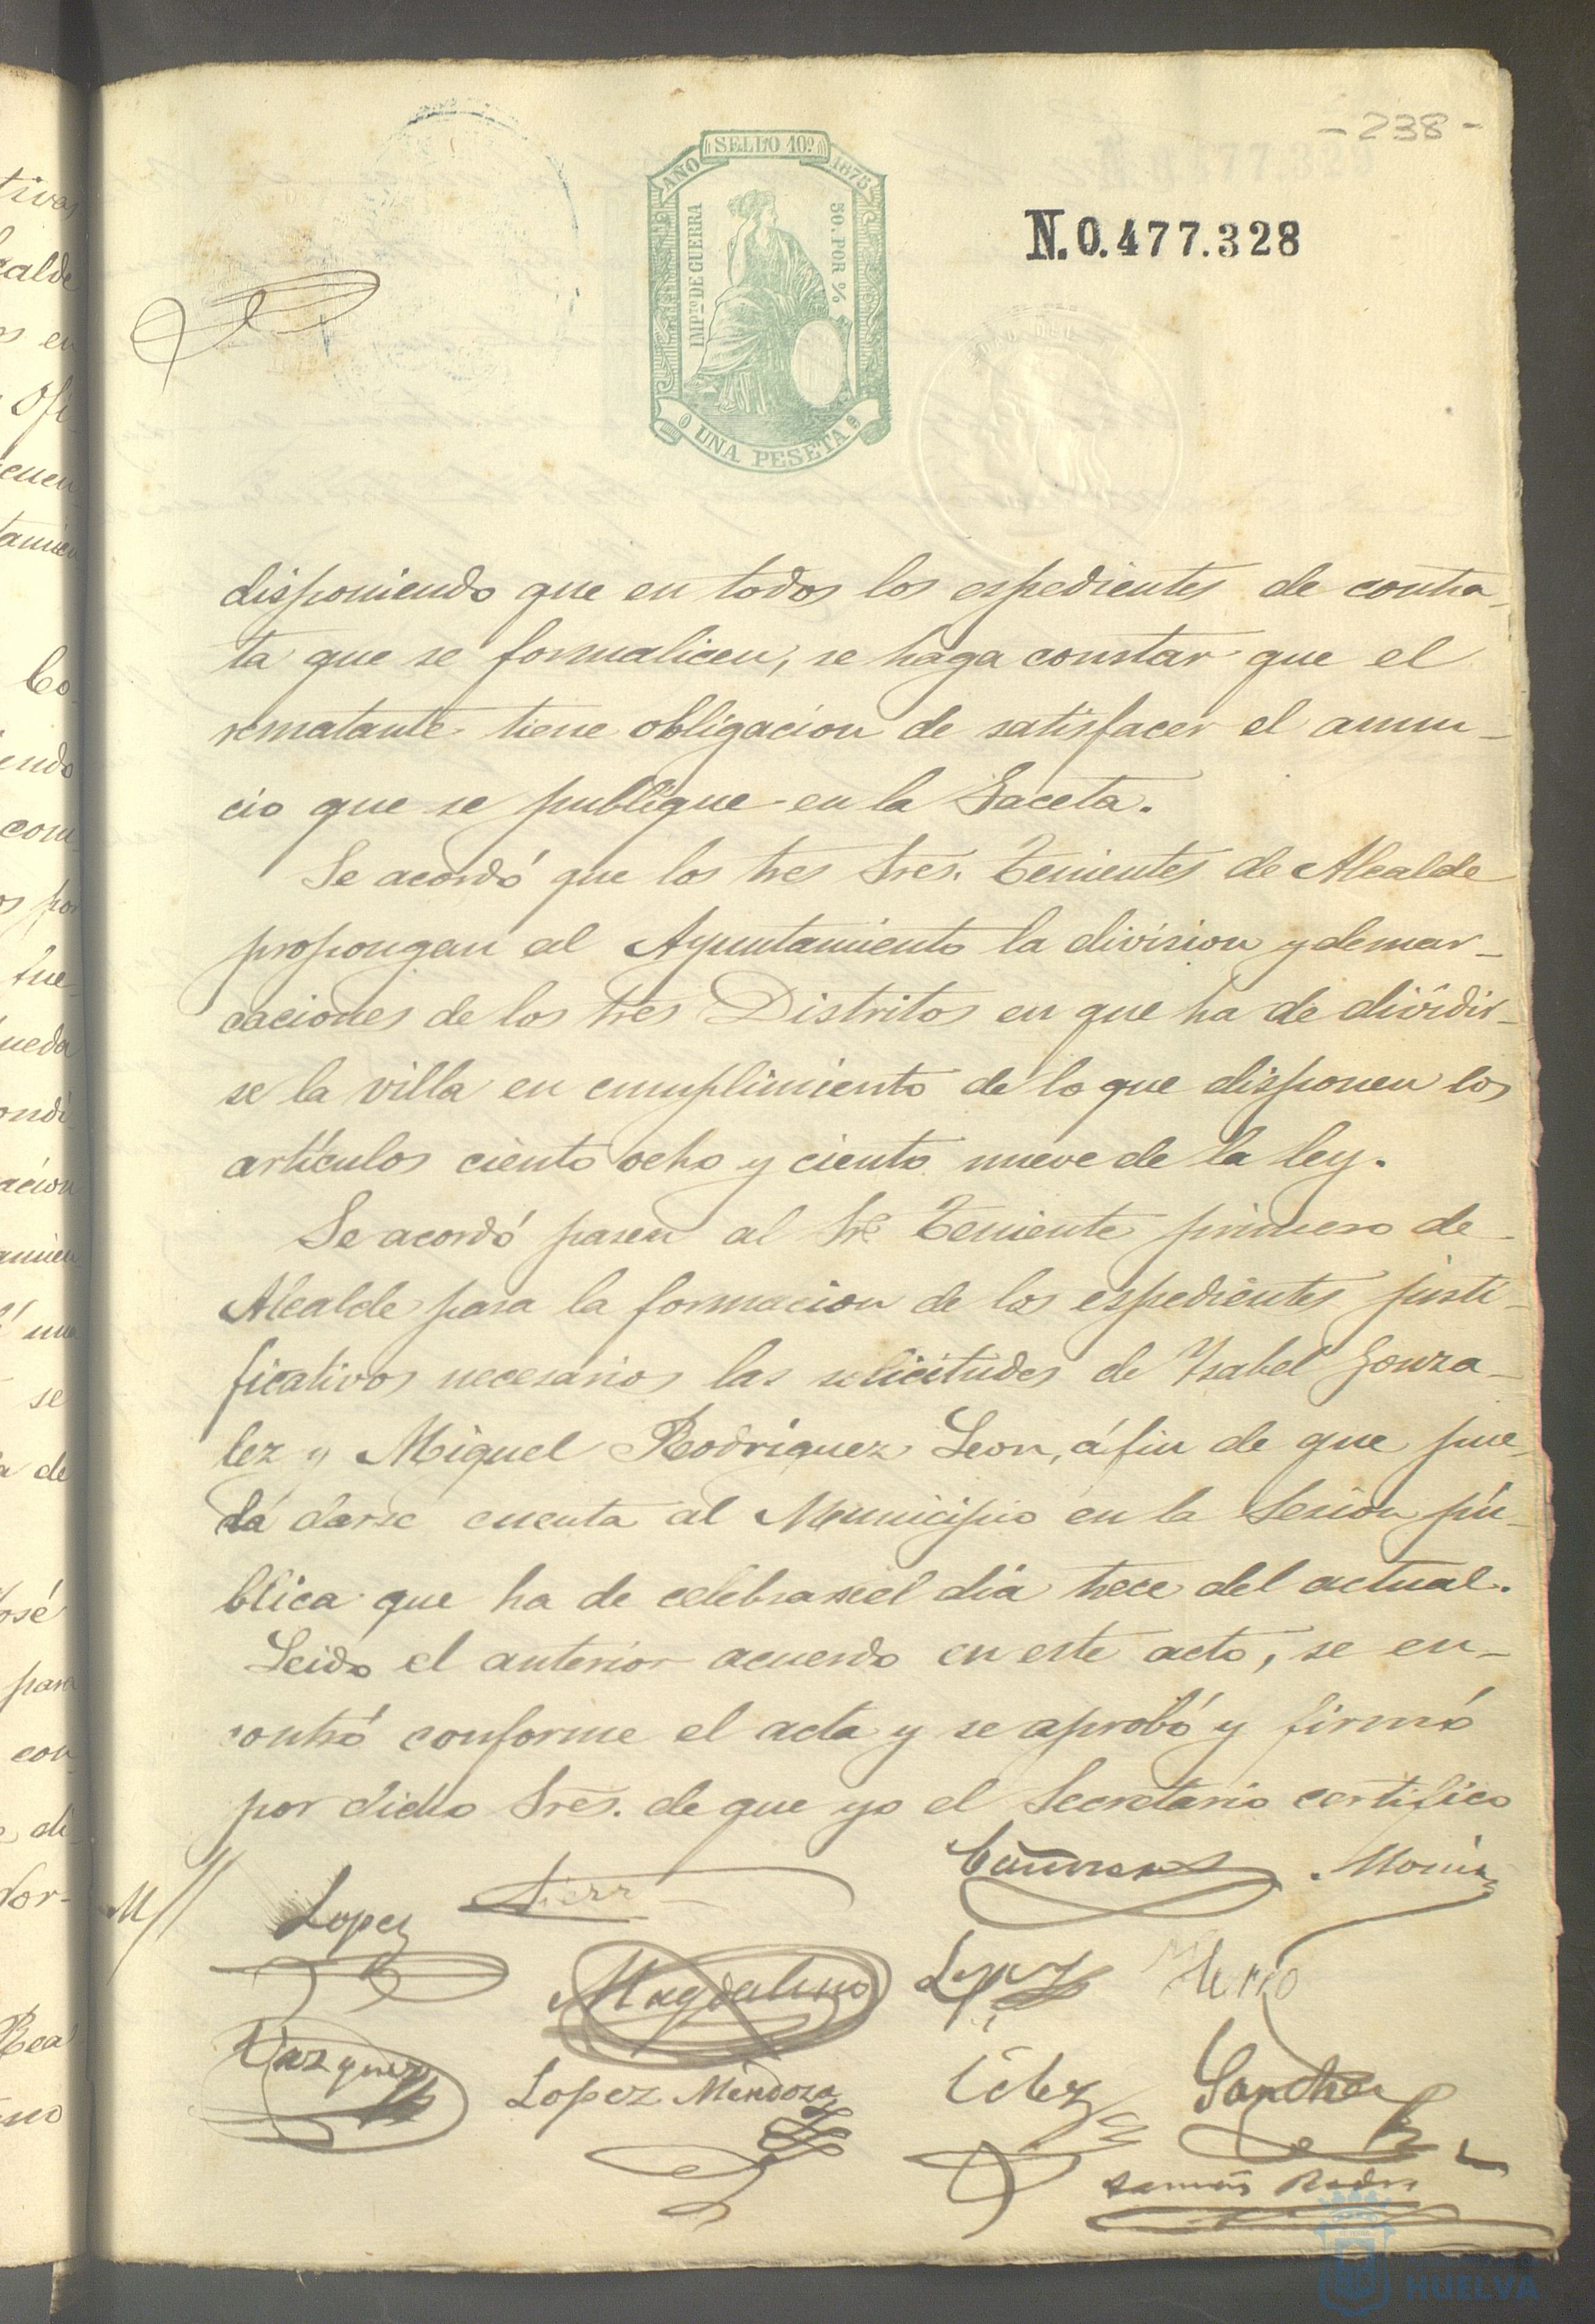 - 238 -
SELLO 10º
AÑO 1875
IMPTO DE GUERRA
50. POR %
0 UNA PESETA 9
N.0.477.328
disponiendo que en todos los espedientes de contra-
ta que se formalicen, se haga constar que el
rematante tiene obligacion de satisfacer el anun-
cio que se publique en la Gaceta.
Se acordó que los tres Sres. Tenientes de Alcalde
propongan al Ayuntamiento la division y demar-
caciones de los tres Distritos en que ha de dividir-
se la villa en cumplimiento de lo que disponen los
artículos ciento ocho y ciento nueve de la ley.
Se acordó pasen al Sr. Teniente primero de
Alcalde para la formacion de los espedientes justi-
ficativos necesarios las solicitudes de Ysabel Gonza-
lez y Miguel Rodriguez Leon, á fin de que pue-
da darse cuenta al Municipio en la sesion pú-
blica que ha de celebrarse el dia trece del actual.
Leido el anterior acuerdo en este acto, se en-
contró conforme el acta y se aprobó y firmó
por dicho Sres. de que yo el Secretario certifico
Lopez
Magdaleno
Vazquez
Lopez Mendoza
Sanchez
HUELVA